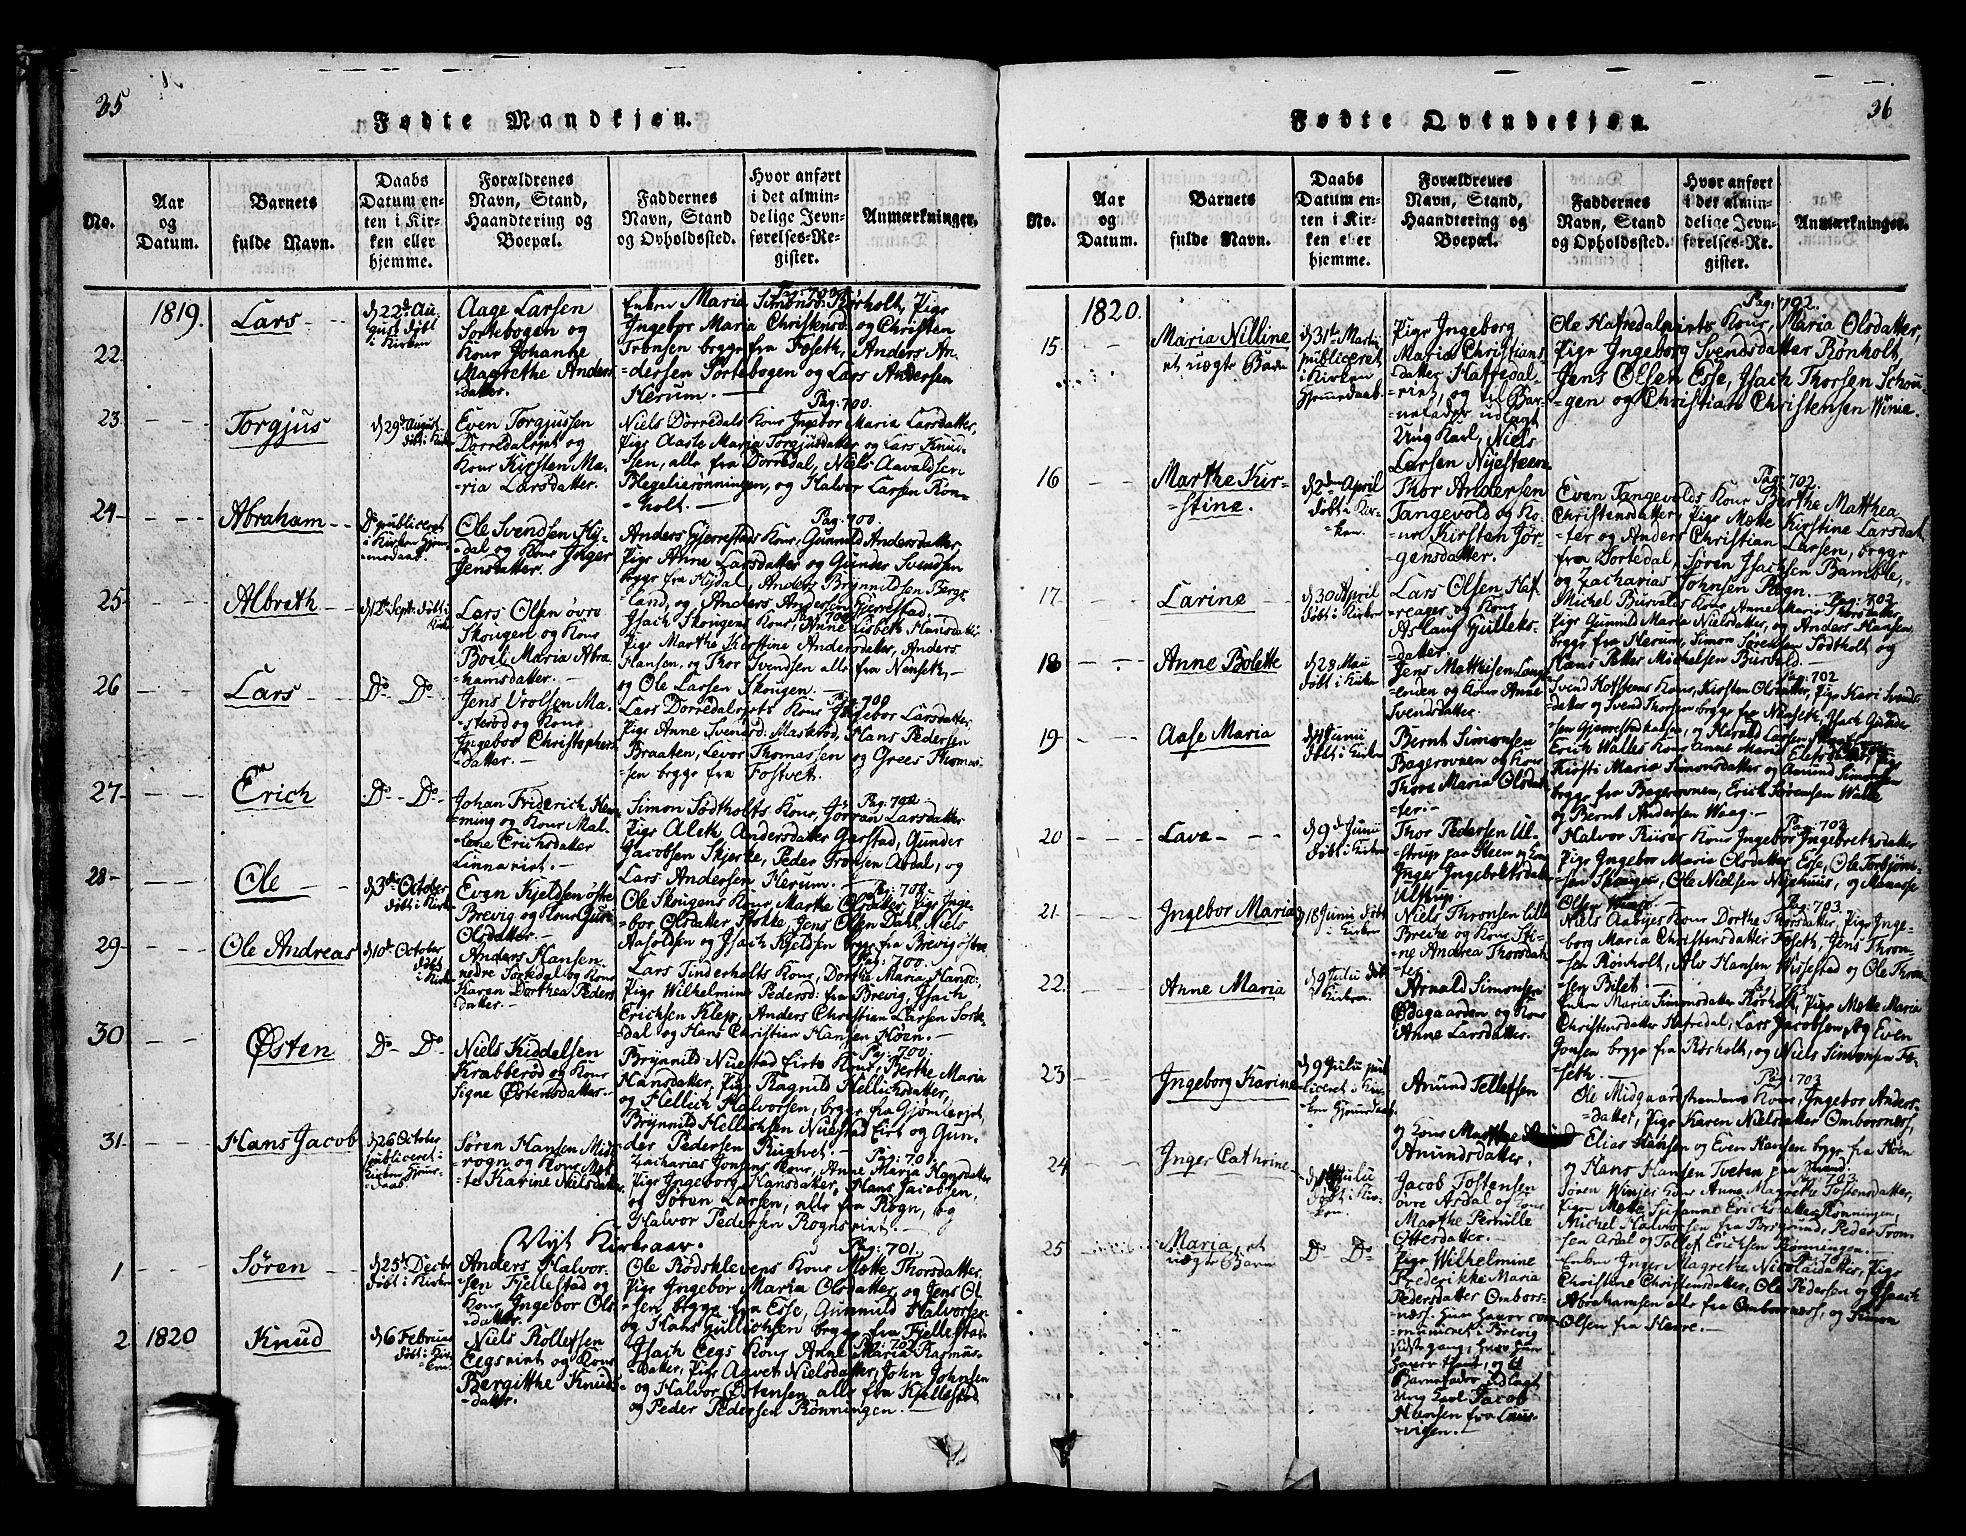 35
Fødte Mandkjøn.
No.
Aar
og
Datum.
Barnets
fulde Navn.
Daabs
Datum en-
ten i Kir-
ken eller
hjemme.
Forældrenes
Navn, Stand,
Haandtering og
Boepæl.
Faddernes
Navn, Stand
og Opholdssted.
Hvor anført
i det almin-
delige Jevn-
førelses-Re-
gister.
Anmærkninger.
1819.
22
Lars
d 22de Au-
gust döbt
i Kirken
Aage Larsen
Sortebogen og
Kone Johanne
Magrethe Anders
datter.
Pag: 703
Enken Maria Simonsd: Rörholt, Pige
Ingebor Maria Christensd: og Christen
Tronsen begge fra Foseth, Anders An-
dersen Sortebogen og Lars Andersen
Herum.
23
Torgjus
d 29de August
döbt i Kirken
Even Torgjussen
Dorredalspt og
Kone Kirsten Ma-
ria Larsdatter.
Pag: 700.
Niels Dorredals Kone Ingebor Maria Larsdatter,
Pige Aaste Maria Torgjusdatter og Lars Knud-
sen, alle fra Dorredal, Niels Aavaldsen
Blegelierönningen, og Halvor Larsen Rön-
holt.
24
Abraham
Do publiceret
i Kirken Hjem-
medaab.
Ole Svendsen Hy-
dal og Kone Inger
Jensdatter.
Pag: 700.
Anders Gjerrestads Kone, Gunnild Andersdatter
Pige Anne Larsdatter og Gunder Svendsen
begge fra Hydal, Anders Brynnildsen Berge
land, og Anders Andersen Gjerrestad.
25
Albreth
d 12te Septr. döbt i
Kirken
Lars Olsen övre
Skougen og Kone
Boel Maria Abra-
hamsdatter.
Pag 700
Isach Skougens Kone, Anne Lisbeth Hansdatter
Pige Marthe Kirstine Andersdatter, Anders
Hansen, og Thor Svendsen alle fra Nenseth,
og Ole Larsen Skougen.
26
Lars
Do Do
Jens Wrolsen Ma-
steröd og Kone
Ingebor Christophers
datter.
Pag: 700
Lars Dorredalspts Kone Ingebor Larsdatter,
Pige Anne Svensd: Masteröd, Hans Pedersen
Braaten, Levor Thomassen og Grees Thomas-
sen begge fra Fostvet.
27
Erich
Do Do
Johan Friderich Hen-
ming og Kone Mal-
lene Erichsdatter
Linnariet.
Pag: 700.
Simon Södtholts Kone, Jörran Larsdatter
Pige Aleth Andersdatter Garstad, Gunder
Jacobsen Skjerke, Peder Tronsen Ardal, og
Lars Andersen Herum.
28
Ole
d 3die October
döbt i Kirken
Even Kjeldsen östre
Brevig og Kone Gun-
Olsdatter.
Pag: 702.
Ole Skougens Kone, Marthe Olsdatter, Pige Inge-
bor Olsdatter Stokke, Jens Olsen Dahl, Niels
Aasoldsen og Isach Kjeldsen begge fra Brevig östre
29
Ole Andreas
d 10de October
döbt
i Kirken
Anders Hansen
nedre Tortedal og Kone
Karen Dorthea Peders
datter.
Pag: 700.
Lars Tinderholts Kone, Dorthe Maria Hansd:,
Pige Wilhelmine Pedersd: fra Brevig, Isach
Erichsen Klep, Anders Christian Larsen Torte-
dal og Hans Christian Hansen Höen.
30
Østen
Do Do
Niels Kiddelsen
Kräbberöd og Kone
Signe Østensdatter
Pag: 700.
Brynnild Nuestad Eirts Kone, Berthe Maria
Hansdatter, Pige Ragnild Hellichsdatter,
og Hellich Halvorsen, begge fra Gjömleriet,
Brynnild Hellichsen Nuestad Eirt og Gun-
der Pedersen Rughvet.
31
Hans Jacob
d 26 October
publiceret i
Kirken Hjem-
daab.
Sören Hansen Mid-
rogn og Kone Met-
te Karine Nielsdatter
Pag: 701.
Zacharias Jonsens Kone, Anne Maria Hansdatter
Pige Ingeborg Hansdatter, Hans Jacobsen,
og Sören Larsen, alle fra Rogn, og
Halvor Pedersen Rognsriet.
Nyt Kirkeaar.
1
Sören
d 25de Decbr
döbt i Kirken
Anders Halvor-
sen Fjellestad
Kone Ingebor Ols
datter.
Pag: 701.
Ole Rödsklevens Kone Mette Thorsdatter,
Pige Ingebor Maria Olsdatter, og Jens Ol-
sen, begge fra Esse, Gunnuld Halvorsen
og Hans Gullichsen, begge fra Fjellestad
2
1820
Knud
d 6 Februar
döbt i Kir-
ken.
Niels Rollefsen
Eegsriet og Kone
Bergitthe Knuds-
datter.
Pag: 702
Isach Eegs Kone Anne Maria Rasmus-
datter, Pige Agnet Nielsdatter, John Johnsen
og Halvor Østensen alle fra Kjellestad,
og Peder Pedersen Rönningen.
36
Fødte Qvindekjøn.
No.
Aar
og
Datum.
Barnets
fulde Navn.
Daabs
Datum en-
ten i Kir-
ken eller
hjemme.
Forældrenes
Navn, Stand,
Haandtering og
Boepæl.
Faddernes
Navn, Stand
og Opholdssted.
Hvor anført
i det almin-
delige Jevn-
førelses-Re-
gister.
Anmærkninger.
1820.
15
Maria Nilline
et uægte Barn
d 31te Martii
publiceret
i Kirken
Hjemmedaab
Pige Ingeborg
Maria Christians-
datter Hafredal-
riet, og til Bar-
nefader udlagt
Ung Karl, Niels
Larsen Nyesteen
Pag: 702.
Ole Hafredalpints Kone, Maria Olsdatter,
Pige Ingeborg Svendsdatter Rønholt,
Jens Olsen Esse, Isach Thorsen Schou-
gen og Christian Christensen Winie.
16
Marthe Kir-
stine.
d 2den April
döbt i Kir-
ken.
Thor Andersen
Tangevold og Ko-
ne Kirsten Jör-
gensdatter.
Pag: 702.
Even Tangevalds Kone Berthe Matthea
Christensdatter, Pige Mette Kirstine Larsdat
ter og Anders Christian Larsen, begge
fra Tortedal, Søren Isachsen Bamble,
og Zacharias Johnsen Rogn.
17
Larine
d 30 April
döbt i Kirken
Lars Olsen Haf-
reager og Kone
Aslaug Gulleks-
datter.
Pag: 702
Michel Burvalds Kone, Anne Marie Thorsdatter
Pige Gunnild Maria Nielsdatter, og Anders Hansen,
begge fra Herum, Simon Sørensen Södtholt og
Hans Petter Michelsen Burvald.
18
Anne Bolette
d 28 Maii
döbt i Kirken
Jens Mathisen Lang-
enden og Kone Anne
Svendsdatter.
Pag: 702
Svend Hofstens Kone, Kirsten Olsdatter, Pige Kari Svends
datter og Svend Thorsen begge fra Nenseth, Isach Gunder
sen Gjerrestadhaugen, og Harald Larsen
19
Aase Maria
d 4 Junii
döbt i Kirken
Bernt Simonsen
Bagerovnen og Kone
Thore Maria Olsdat-
ter.
Erich Walles Kone Anne Maria Elefsdatter, Pige
Kirsti Maria Simonsdatter og Amund Simonsen
begge fra Bagerovnen, Erich Sørensen Walle
og Bernt Andersen Waag.
20
Lava
d 9de Junii
döbt i Kirken
Thor Pedersen Ul-
strup paa Heen og Kone
Inger Ingebretsdatter
Ulstrup
Pag: 703
Halvor Ruses Kone Ingebor Ingebrethsdatter
Pige Ingebor Maria Olsdatter Esse, Ole Torbjörn-
sen Skougen, Ole Nielsen Nyehuus, og Manasse
Olsen
21
Ingebor Maria
d 18 Junii döbt
i Kirken
Niels Thronsen lille
Breike og Kone Sti-
ne Andrea Thorsdat
ter
Pag: 703.
Niels Aabyes Kone Dorthe Thorsdatter, Pige Inge-
borg Maria Christensdatter Foseth, Jens Thron-
sen Rønholt, Alv Hansen Wissestad og Ole Thron-
sen Bilet.
22
Anne Maria
d 9 Julii döbt
i Kirken
Arnald Simonsen
Ødegaarden og Kone
Anne Larsdatter.
Enken Maria Simonsdatter Rørholt, Pige Mette Maria
Christensdatter Hafredal, Lars Jacobsen, og Even
Jonsen begge fra Rørholt, og Niels Simonsen Fo-
seth.
23
Ingeborg Karine
d 9 Julii pub
liceret i Kir-
ken Hjemdaab.
Anund Tellefsen
og Kone Marthe
Anundsdatter.
Pag: 703
Ole Midgaardstrandens Kone, Ingebor Anders-
datter, Pige Karen Nielsdatter Ombornæs,
Elias Hansen og Even Hansen begge fra Höen
og Hans Hansen Tveten paa Strand.
24
Inger Cathrine
d 16 Julii
döbt i Kir-
ken.
Jacob Tostensen
övre Ardal og Kone
Marthe Pernille
Ottersdatter.
Pag: 703.
Søren Winjes Kone Anne Magrethe Tostensdatter,
Pige Mette Susanne Erichsdatter Rønningen,
Michel Halvorsen fra Borgrund, Peder Tron-
sen Ardal og Tollef Erichsen Rønningen.
25
Maria, et
uægte Barn
Do Do
Pige Wilhelmine
Frederikke Maria
Pedersdatter Ombors-
næs; hun haver com-
municeret i Brevig
sidste gang, hvor hun
haver tient, og til
Barnefader udlagt
Ung Karl Jacob
Hansen fra Laur-
vigen.
Pag: 703
Enken Inger Magrethe Nicolaidatter, Pige
Christene Christensdatter, Ole Pedersen og Isach
Abrahamsen alle fra Ombornæs, og Simon
Olsen fra Herre.